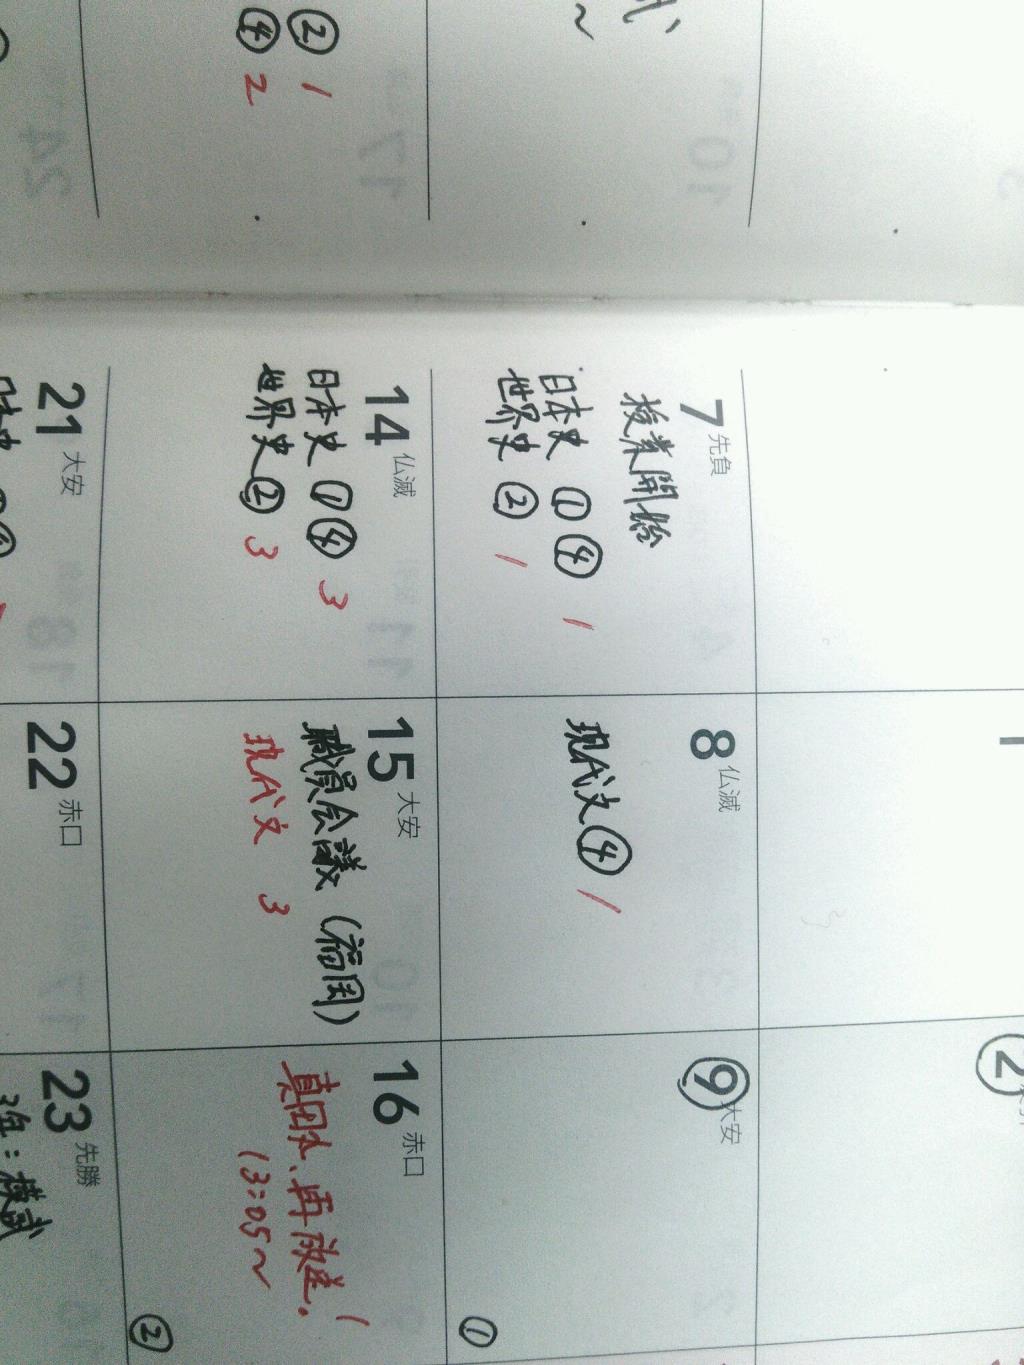 ② 1
④ 2
7 先負
授業開始
日本史 ①④ 1
世界史 ② 1
8 仏滅
現代文④ 1
9 大安
①
14 仏滅
日本史 ①④ 3
世界史② 3
15 大安
職員会議（福岡）
現代文 3
16 赤口
真田丸、再放送！
13:05〜
②
21 大安
22 赤口
23 先勝